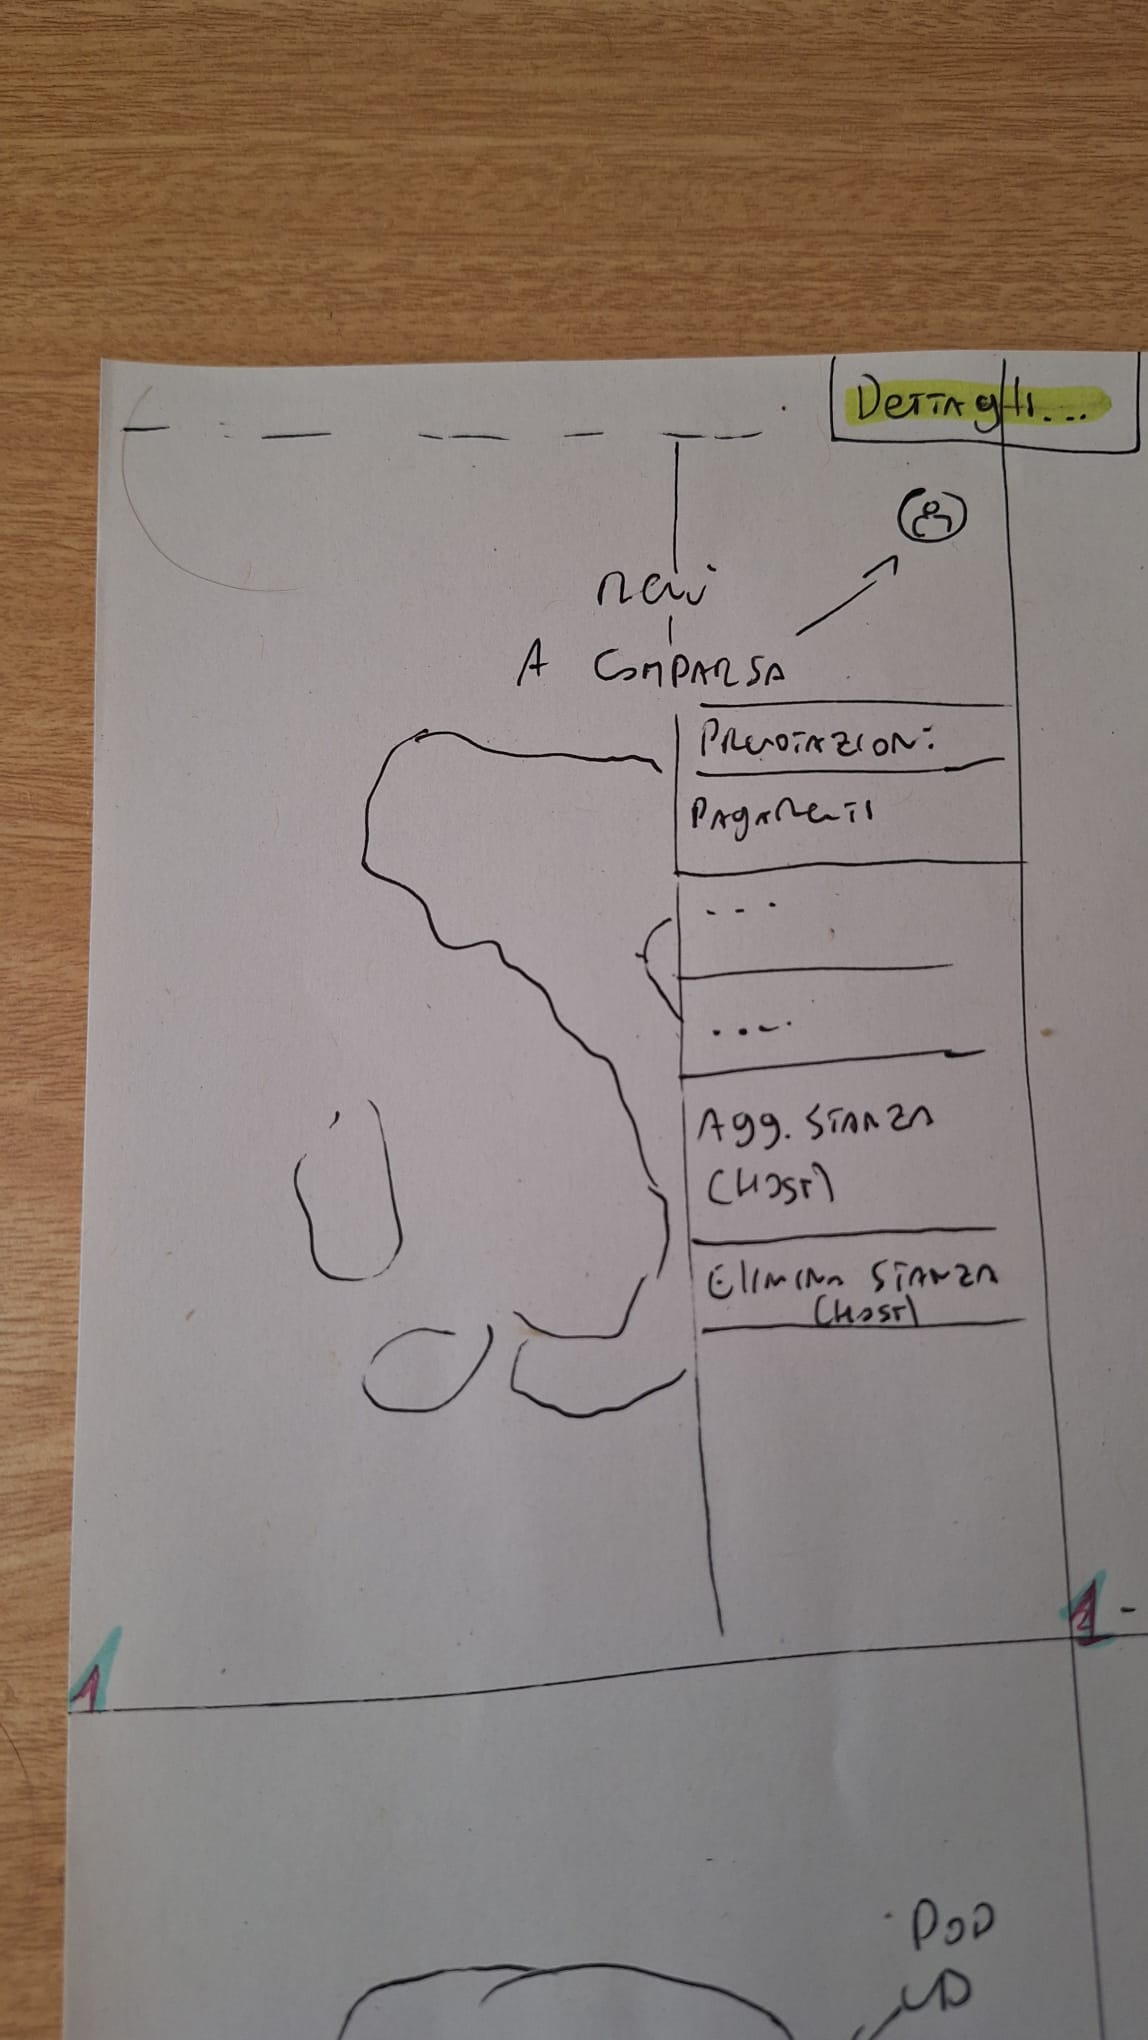 Dettagli...
nav
A COMPARSA
PRENOTAZIONI
PAGAMENTI
- - -
....
Agg. STANZA
(HOST)
ELIMINA STANZA
(HOST)
1
1 -
POP
UP